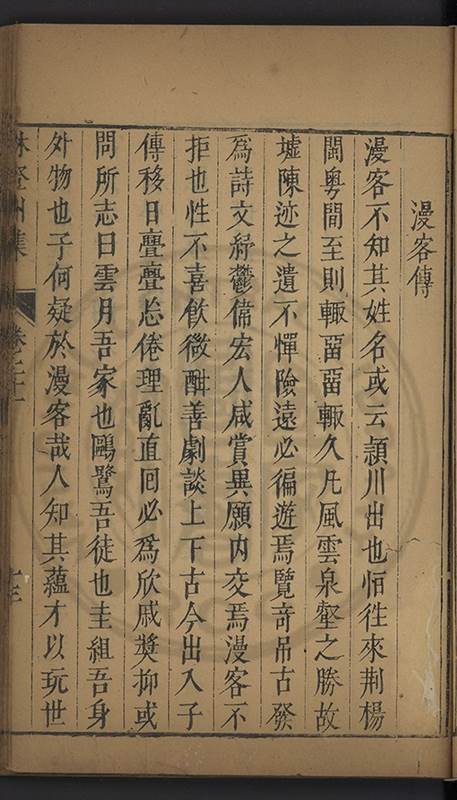 漫客傳
漫客不知其姓名或云潁川出也恒徃來荆楊
閩粤間至則輒畱畱輒久凡風雲泉壑之勝故
墟陳迹之遺不憚險遠必徧遊焉覽竒吊古發
爲詩文紓鬱僃宏人咸賞異願内交焉漫客不
拒也性不喜飲微酣善劇談上下古今出入子
傳移日亹亹忘倦理亂直回必爲欣戚奬抑或
問所志曰雲月吾家也鷗鷺吾徒也圭組吾身
外物也子何疑於漫客哉人知其蘊才以玩世
林登州集 卷之二十 十三